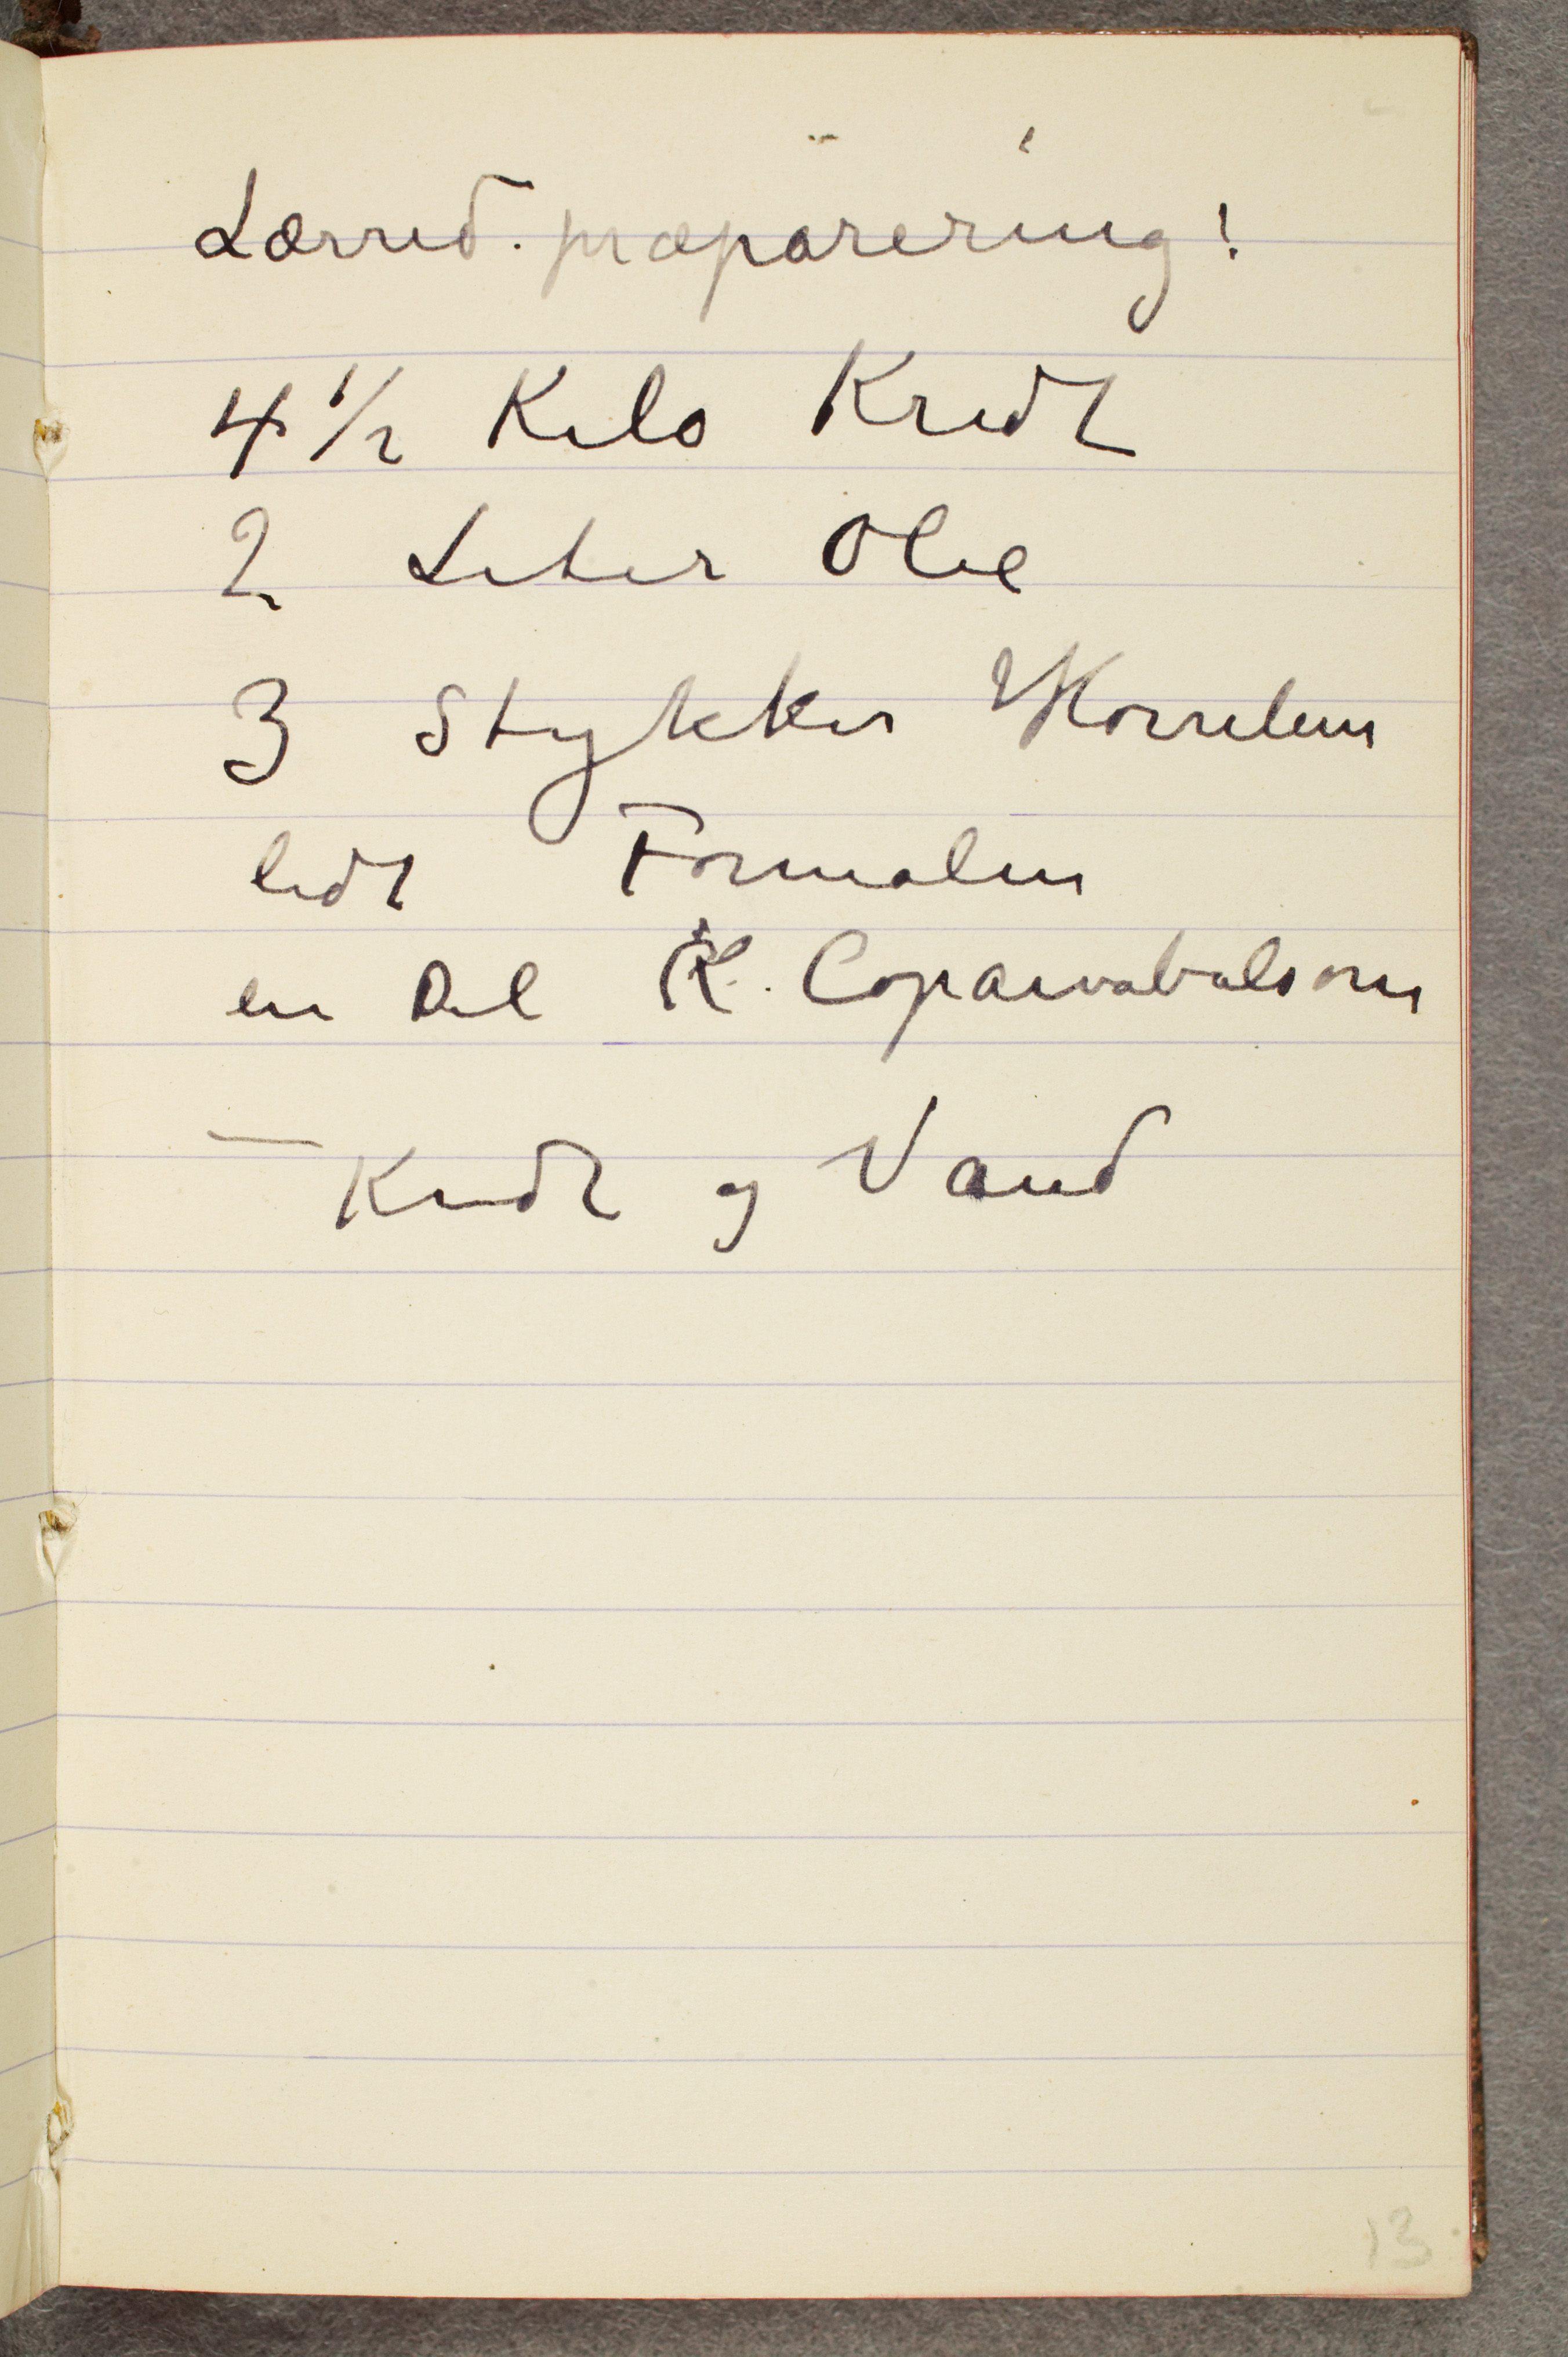 Lærred.præparering!
4 1/2 Kilo Kridt
2 Liter Olie
3 Stykker
lidt Formalin
en Del K. Copaivabalsom
— Kridt og Vand
13